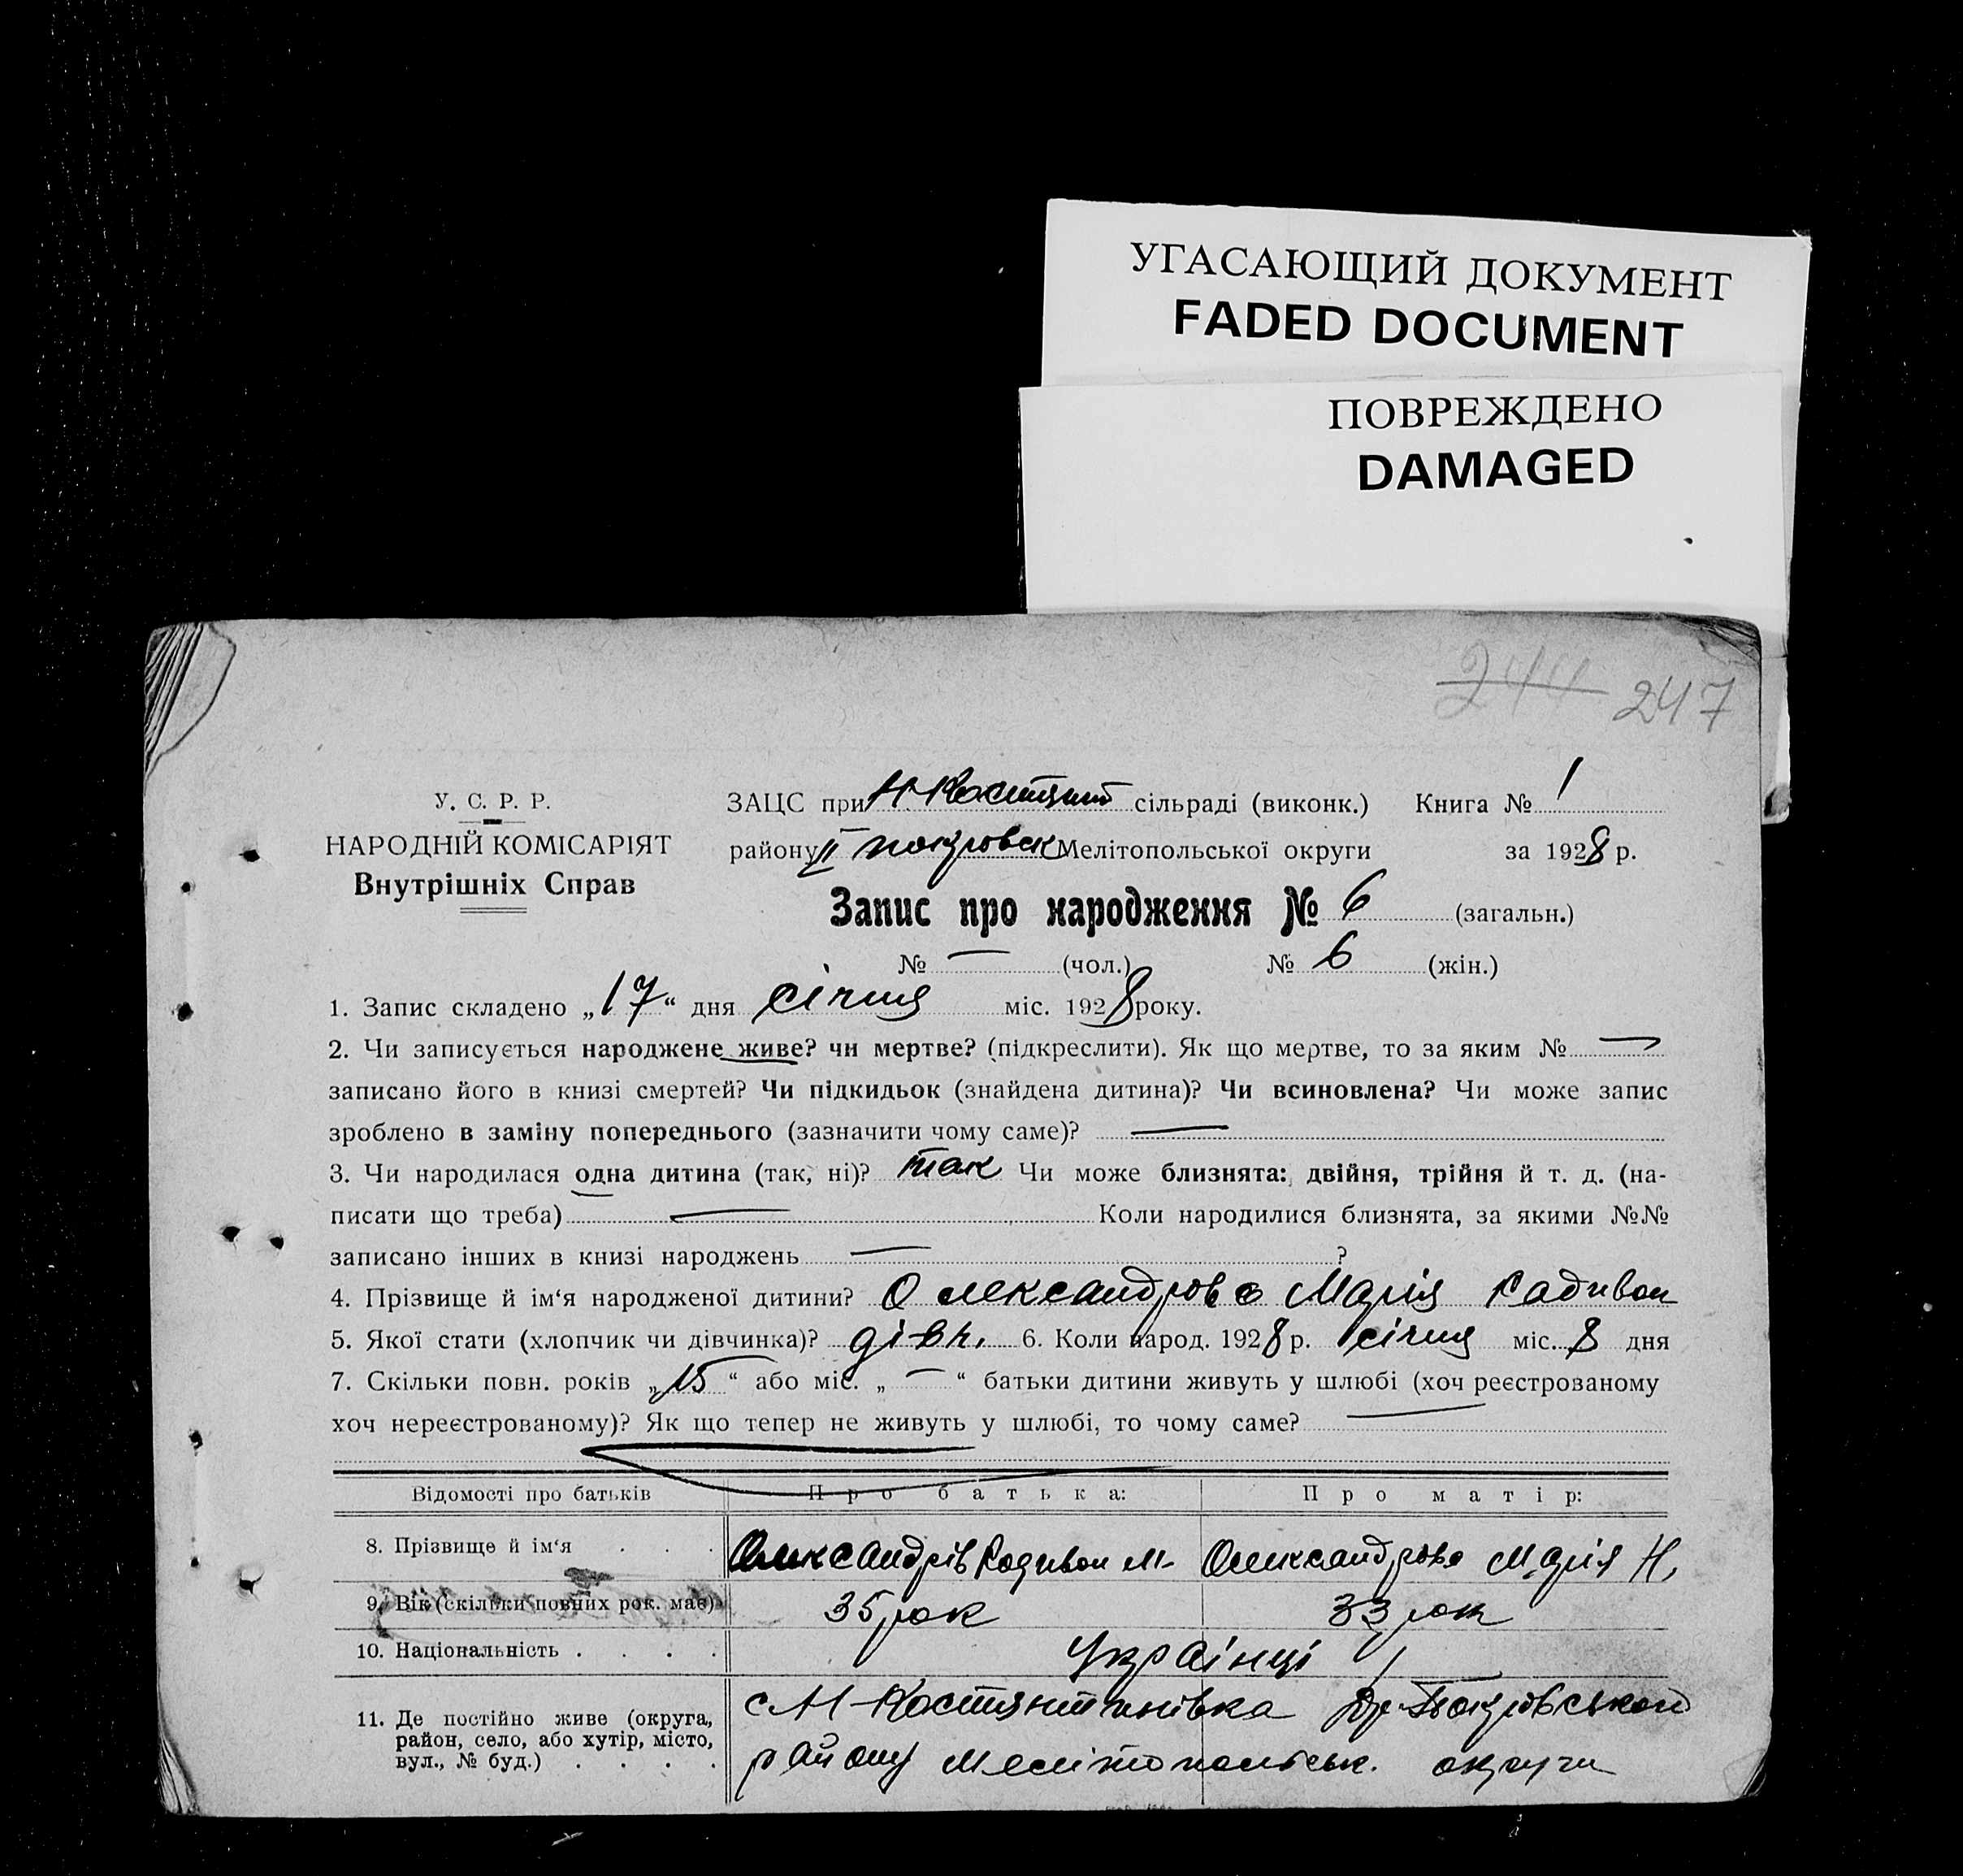 УГАСАЮЩИЙ ДОКУМЕНТ
FADED DOCUMENT
ПОВРЕЖДЕНО
DAMAGED
244 247
У. С. Р. Р.
НАРОДНІЙ КОМІСАРІЯТ
Внутрішніх Справ
ЗАЦС при сільраді (виконк.) Книга № 1
району II покровск Мелітопольської округи за 1928 р.
Запис про народження № 6 (загальн.)
№ — (чол.) № 6 (жін.)
1. Запис складено „17“ дня січня міс. 1928 року.
2. Чи записується народжене живе? чи мертве? (підкреслити). Як що мертве, то за яким № —
записано його в книзі смертей? Чи підкидьок (знайдена дитина)? Чи всиновлена? Чи може запис
зроблено в заміну попереднього (зазначити чому саме)? —
3. Чи народилася одна дитина (так, ні)? так Чи може близнята: двійня, трійня й т. д. (на-
писати що треба) — Коли народилися близнята, за якими №№
записано інших в книзі народжень — ?
4. Прізвище й ім‘я народженої дитини? Олександрова Марія Радивон
5. Якої стати (хлопчик чи дівчинка)? дівч. 6. Коли народ. 1928 р. січня міс. 8 дня
7. Скільки повн. років „15“ або міс. „—“ батьки дитини живуть у шлюбі (хоч реєстрованому
хоч нереєстрованому)? Як що тепер не живуть у шлюбі, то чому саме? —
Відомості про батьків Про батька: Про матір:
8. Прізвище й ім‘я . . . Олександрів Радивон М. Олександрова Марія Н.
9. Вік (скільки повних рок. має) 35 рок 33 рок
10. Національність . . . . Українці
11. Де постійно живе (округа, район, село, або хутір, місто, вул., № буд.) . . . . с М-Костянтинівка Др-Покровського
району Мелітопольськ. округи